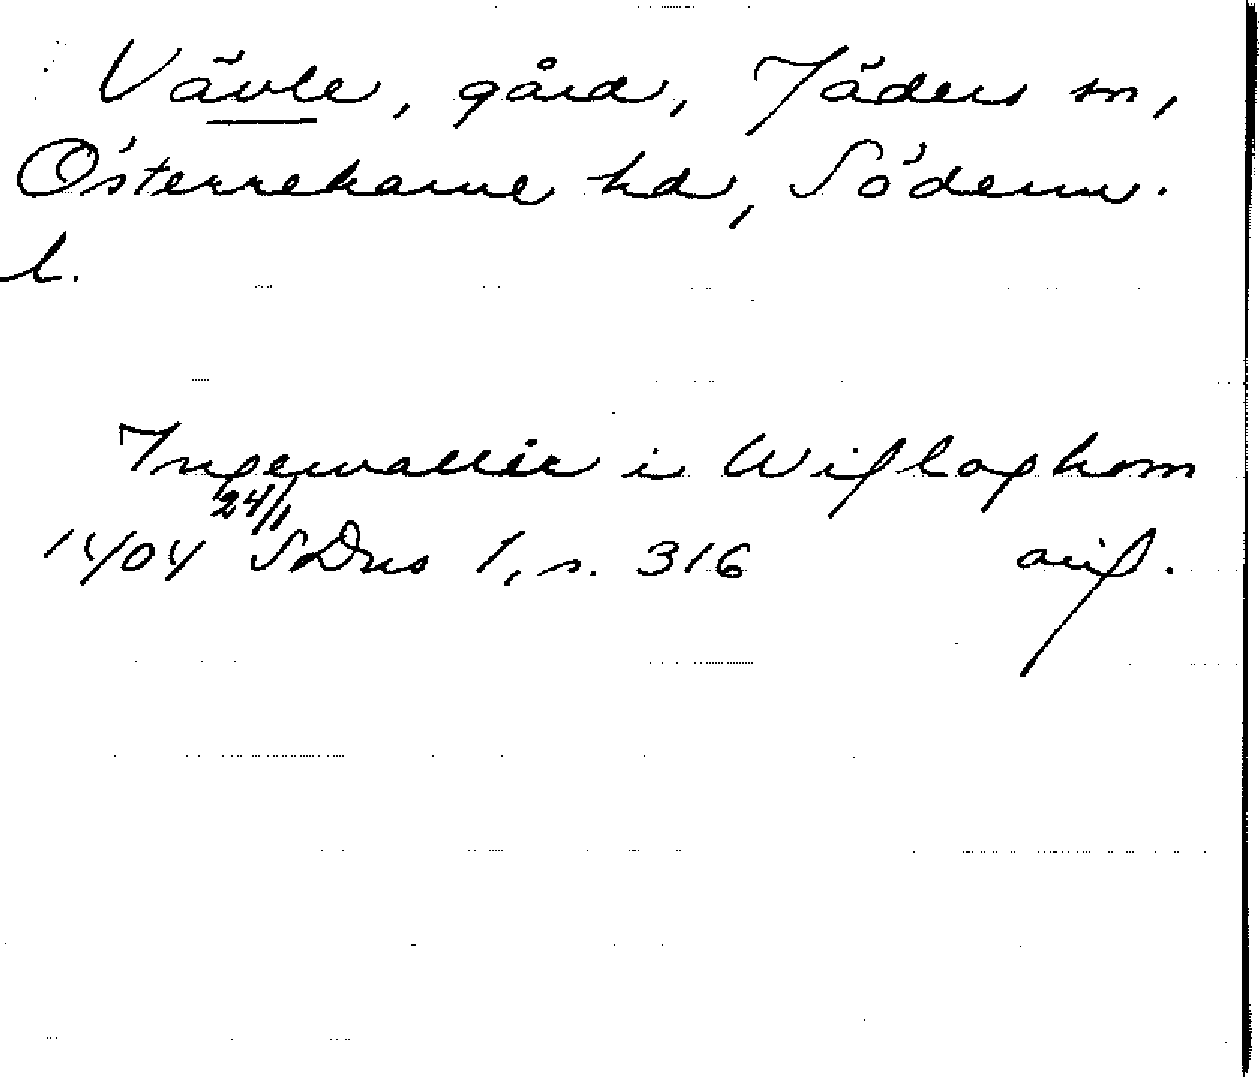 Vävle, gård, Jäders sn,
Österrekarne hd, Söderm.
l.
Ingewalder i Wiflaghom
24/1
1404 SDns 1, s. 316 avsk.